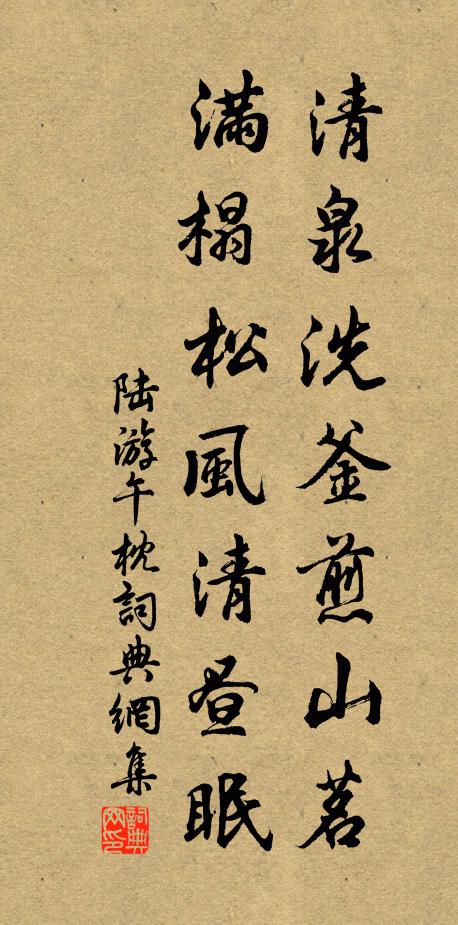 清泉洗釜煎山茗
满榻松風清昼眠
陆游午枕詞典網集
詞典网印